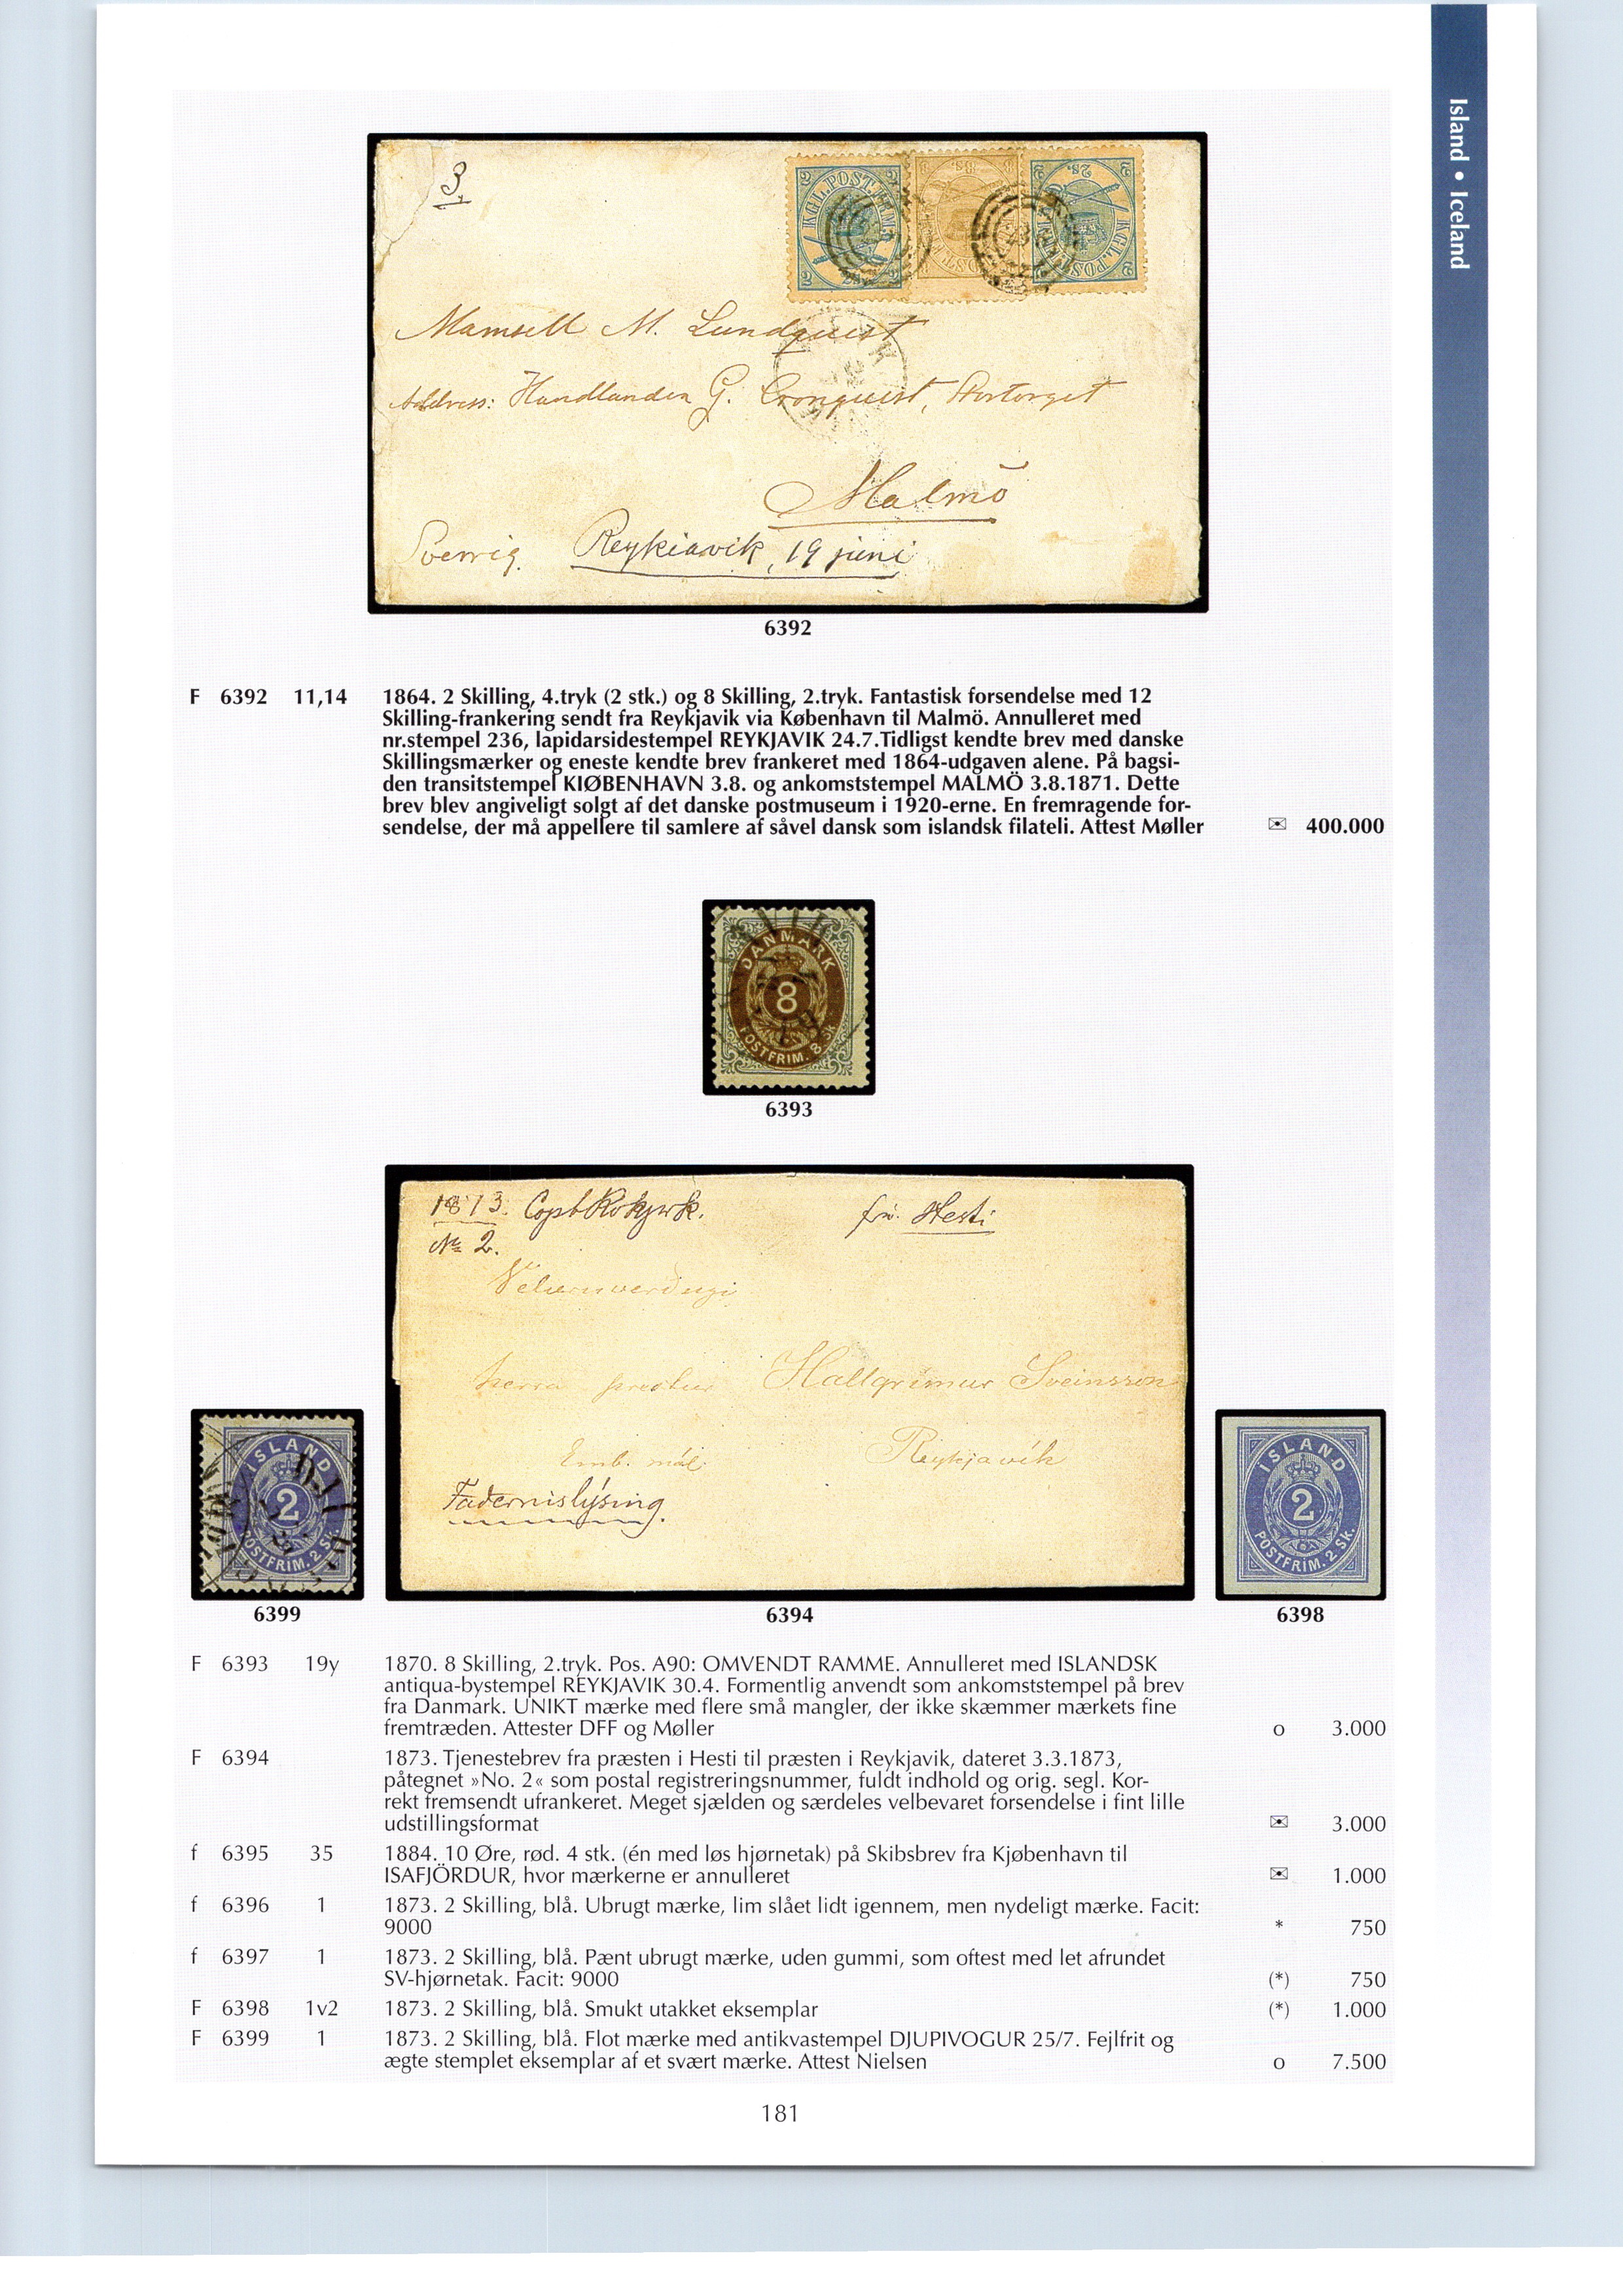 Island • Iceland
3.
2 KGL. POST. FRM. 2
2 2
8 8S. 8
2 2S. 2
KGL. POST
Mamsell M. Lundquist
Address: Handlanden G. Cronquist, Stortorget
Malmö
Sverrig. Reykiavik, 19 juni
6392
F 6392 11,14 1864. 2 Skilling, 4.tryk (2 stk.) og 8 Skilling, 2.tryk. Fantastisk forsendelse med 12
Skilling-frankering sendt fra Reykjavik via København til Malmö. Annulleret med
nr.stempel 236, lapidarsidestempel REYKJAVIK 24.7.Tidligst kendte brev med danske
Skillingsmærker og eneste kendte brev frankeret med 1864-udgaven alene. På bagsi-
den transitstempel KIØBENHAVN 3.8. og ankomststempel MALMÖ 3.8.1871. Dette
brev blev angiveligt solgt af det danske postmuseum i 1920-erne. En fremragende for-
sendelse, der må appellere til samlere af såvel dansk som islandsk filateli. Attest Møller ✉ 400.000
DANMARK
8
POSTFRIM. 8 SK.
6393
1873. fr. Hesti
No 2.
herra Hallgrimur Sveinsson
Emb. mál. Reykjavík
Faðernislýsing.
ÍSLAND
2
POSTFRIM. 2 SK.
ÍSLAND
2
POSTFRIM. 2 SK.
6399 6394 6398
F 6393 19y 1870. 8 Skilling, 2.tryk. Pos. A90: OMVENDT RAMME. Annulleret med ISLANDSK
antiqua-bystempel REYKJAVIK 30.4. Formentlig anvendt som ankomststempel på brev
fra Danmark. UNIKT mærke med flere små mangler, der ikke skæmmer mærkets fine
fremtræden. Attester DFF og Møller o 3.000
F 6394 1873. Tjenestebrev fra præsten i Hesti til præsten i Reykjavik, dateret 3.3.1873,
påtegnet »No. 2« som postal registreringsnummer, fuldt indhold og orig. segl. Kor-
rekt fremsendt ufrankeret. Meget sjælden og særdeles velbevaret forsendelse i fint lille
udstillingsformat ✉ 3.000
f 6395 35 1884. 10 Øre, rød. 4 stk. (én med løs hjørnetak) på Skibsbrev fra Kjøbenhavn til
ISAFJÖRDUR, hvor mærkerne er annulleret ✉ 1.000
f 6396 1 1873. 2 Skilling, blå. Ubrugt mærke, lim slået lidt igennem, men nydeligt mærke. Facit:
9000 * 750
f 6397 1 1873. 2 Skilling, blå. Pænt ubrugt mærke, uden gummi, som oftest med let afrundet
SV-hjørnetak. Facit: 9000 (*) 750
F 6398 1v2 1873. 2 Skilling, blå. Smukt utakket eksemplar (*) 1.000
F 6399 1 1873. 2 Skilling, blå. Flot mærke med antikvastempel DJUPIVOGUR 25/7. Fejlfrit og
ægte stemplet eksemplar af et svært mærke. Attest Nielsen o 7.500
181